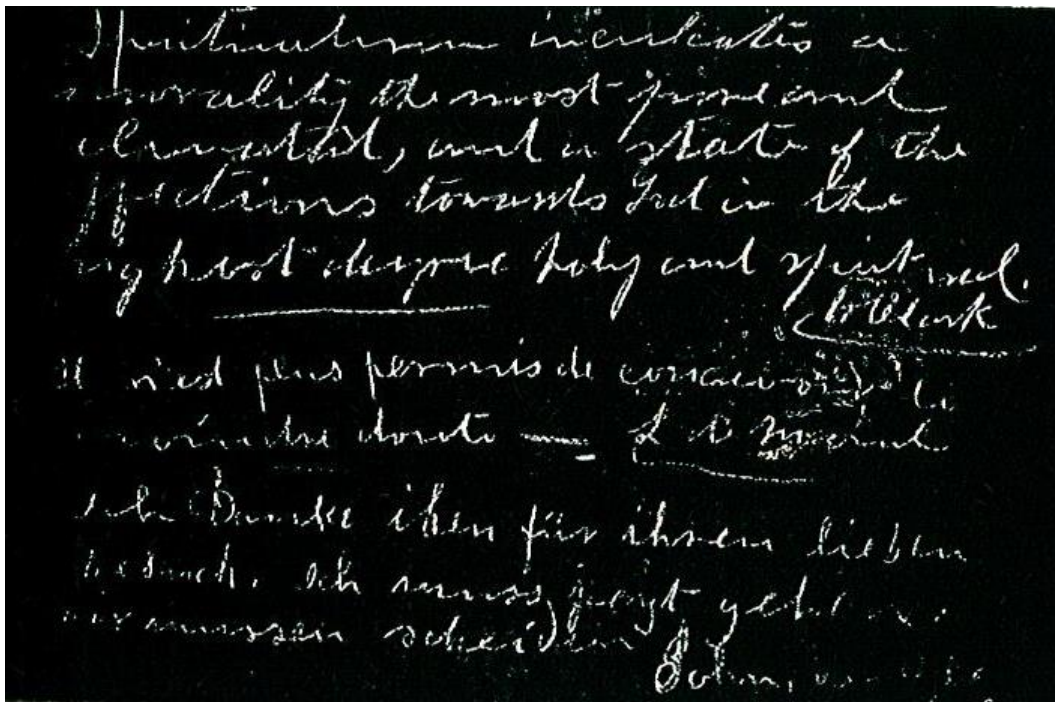 Spiritualism inculcates a
morality the most pure and
elevated, and a state of the
affections towards God in the
highest degree holy and spiritual.
Clark
il n'est plus permis de concevoir le
moindre doute — L D
ich Danke ihen für ihrem lieben
besuch. ich muss jezt gehen.
wir mussen scheiden
John